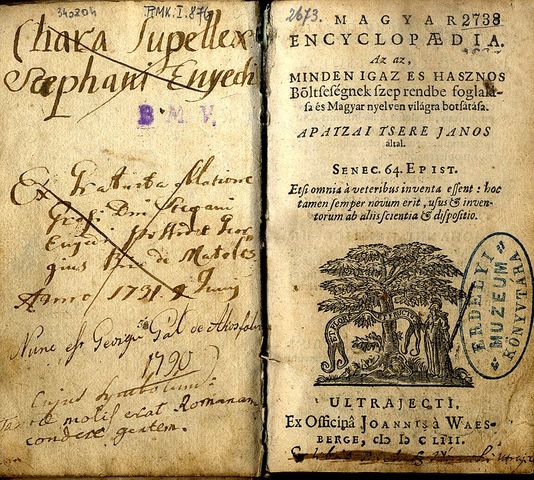 340204
RMK.I.876
Chara Supellex
Stephani Enyedi
B. M. V.
Ex Gratuita Oblatione
Enyedi
de
Anno 1791
Junij
Nunc est Georgii Pál de
1790
Cujus Symbolum:
molis erat Romanam
condere gentem.
2673.
2738
MAGYAR
ENCYCLOPÆDIA.
Az az,
MINDEN IGAZ ES HASZNOS
Bőltseségnek szep rendbe foglalá-
sa és Magyar nyelven világra botsátása.
APATZAI TSERE JANOS
által.
SENEC. 64. EPIST.
Etsi omnia à veteribus inventa essent: hoc
tamen semper novum erit, usus & inven-
torum ab aliis scientia & dispositio.
ERDÉLYI
MUZEUM
KÖNYVTÁRA
ULTRAJECTI,
Ex Officinâ JOANNIS à WAES-
BERGE, cIↃ IↃ CLIII.